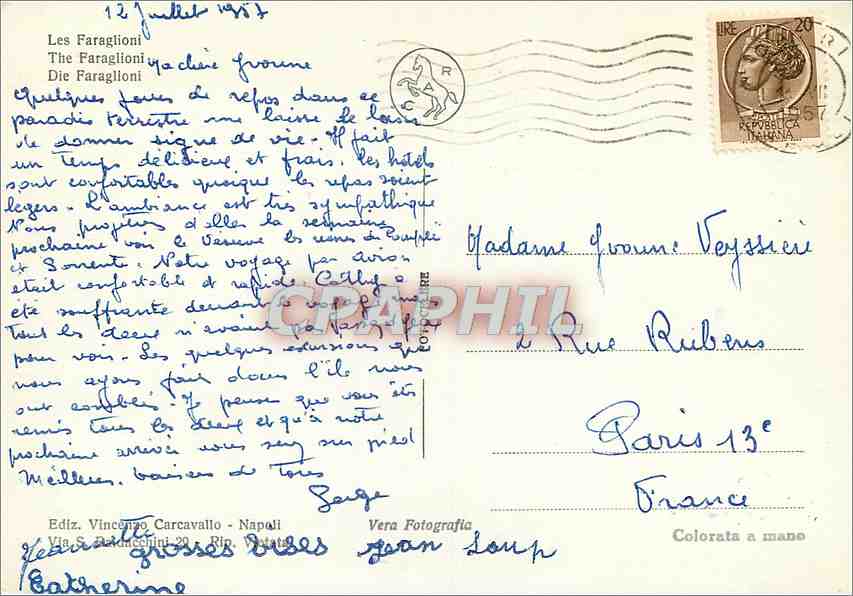 12 Juillet 1957
Les Faraglioni
The Faraglioni
Die Faraglioni
Ma chère Yvonne
Quelques jours de repos dans ce
paradis terrestre me laisse le loisir
de donner signe de vie - Il fait
un temps délicieux et frais. Les hôtels
sont confortables quoique les repas soient
legers - L'ambiance est très sympathique
Nous projetons d'aller la semaine
prochaine voir le Vésuve les ruines de Pompéi
et Sorrente. Notre voyage par avion
était confortable et rapide. Cathy a
été souffrante durant le voyage mais
tout les deux n'avaient pas
pour voir - Les quelques excursions que
nous ayons fait dans l'île nous
ont comblés - Je pense que vous êtes
remis tous les deux et qu'à notre
prochaine arrivée vous serez sur pied
Meilleurs baisers de Tous
Serge
Jeannette
grosses bises Jean Loup
Catherine
Ediz. Vincenzo Carcavallo - Napoli
Via S. Baldacchini 29 - Rip. Vietata
Vera Fotografia
FOTOCELERE
CAR
LIRE 20
REPVBBLICA
ITALIANA
1957
Madame Yvonne Veyssière
2 Rue Rubens
Paris 13e
France
Colorata a mano
CPAPHIL